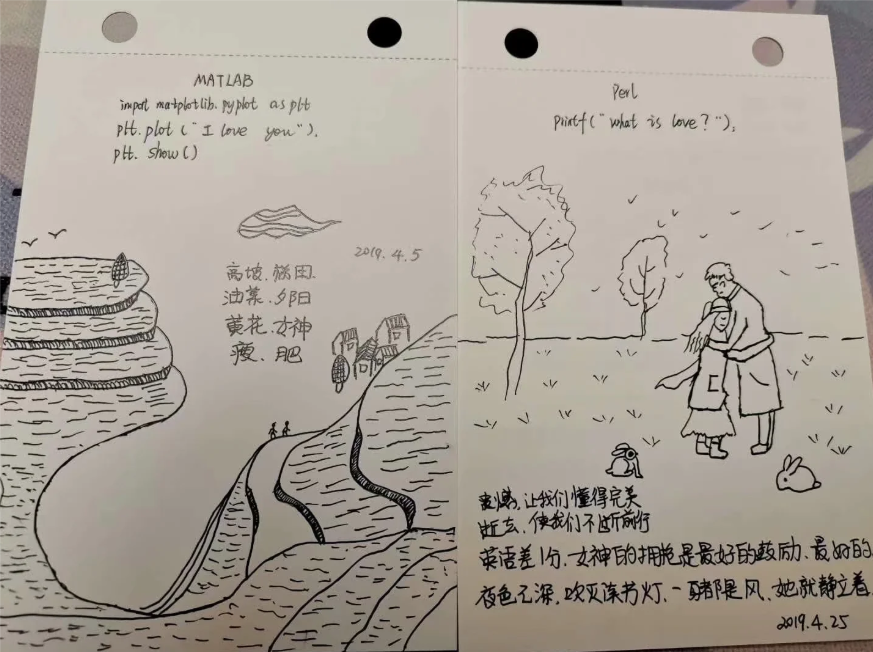 MATLAB
import matplotlib.pyplot as plt
plt.plot("I love you"),
plt.show()
2019.4.5
高坡、梯田、
油菜、夕阳
黄花、女神
瘦、肥
Perl
printf("what is love?"),
让我们懂得完美
逝去、使我们不断前行
英语差1分、女神的拥抱是最好的鼓励、最好的
夜色已深、吹灭读书灯、一身都是风、她就静立着
2019.4.25